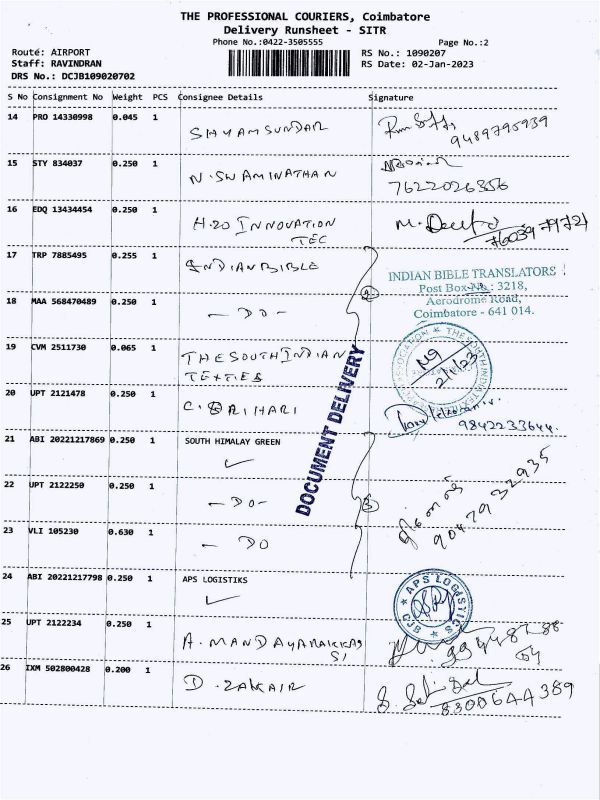 THE PROFESSIONAL COURIERS, Coimbatore
Delivery Runsheet - SITR
Phone No.:0422-3505555 Page No.:2
Route: AIRPORT RS No.: 1090207
Staff: RAVINDRAN RS Date: 02-Jan-2023
DRS No.: DCJB109020702
S No Consignment No Weight PCS Consignee Details Signature
14 PRO 14330998 0.045 1 SHYAMSUNDAR 9489795939
15 STY 834037 0.250 1 N.SWAMINATHAN 7622026356
16 EDQ 13434454 0.250 1 H2O INNOVATION
TEC
17 TRP 7885495 0.255 1 INDIANBIBLE
INDIAN BIBLE TRANSLATORS
Post Box No : 3218,
Aerodrome Road,
Coimbatore - 641 014.
18 MAA 568470489 0.250 1 - DO -
19 CVM 2511730 0.065 1 THESOUTHINDIAN
TEXTIES
2/1/23
20 UPT 2121478 0.250 1 C.SRIHARI 9842233644
DOCUMENT DELIVERY
21 ABI 20221217869 0.250 1 SOUTH HIMALAY GREEN
22 UPT 2122250 0.250 1 - DO - 9047932935
23 VLI 105230 0.630 1 - DO
24 ABI 20221217798 0.250 1 APS LOGISTIKS
APS LOGISTICS
CJB
25 UPT 2122234 0.250 1
26 IXM 502800428 0.200 1 D. ZAKAIR 8300644389